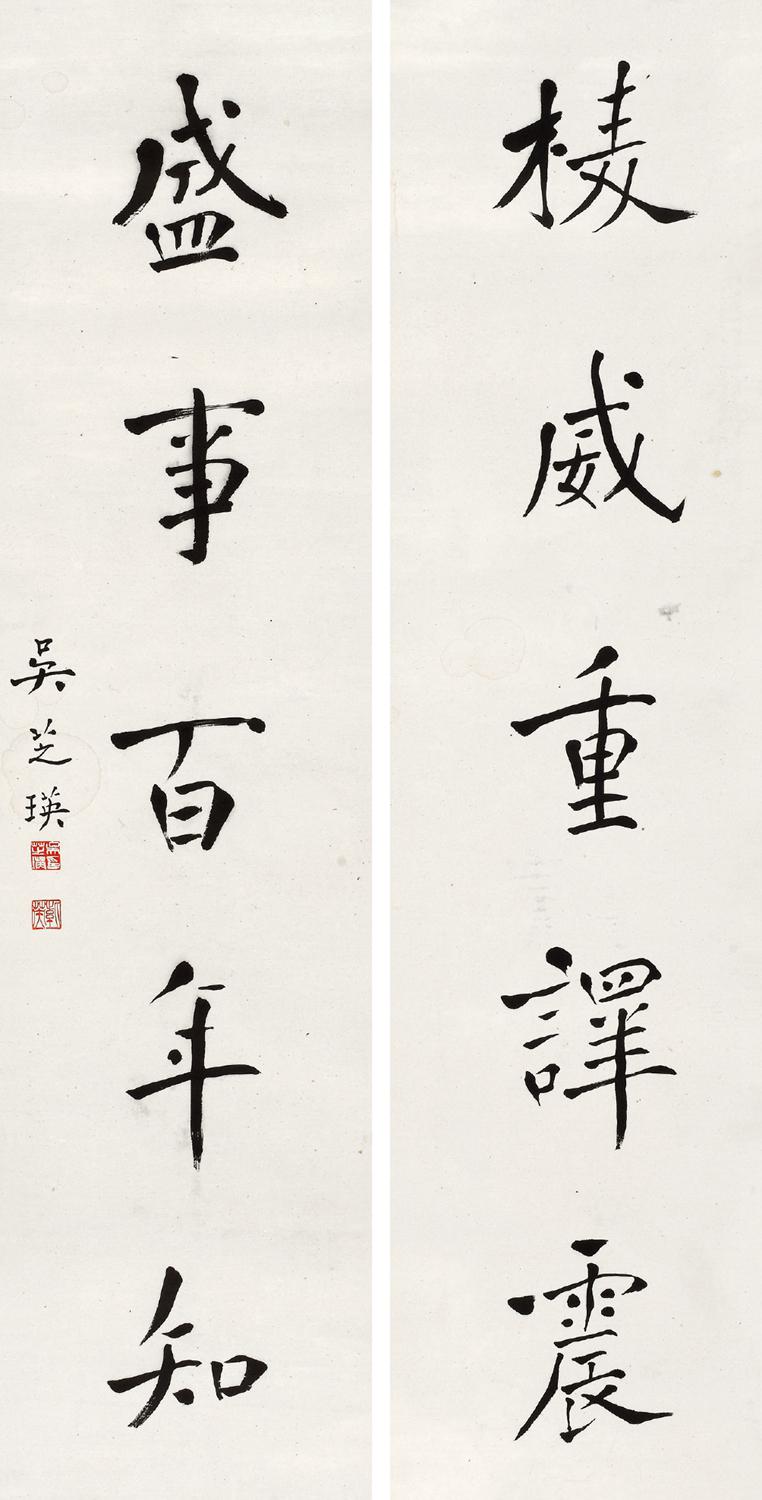 棱威重譯震
盛事百年知
吴芝瑛